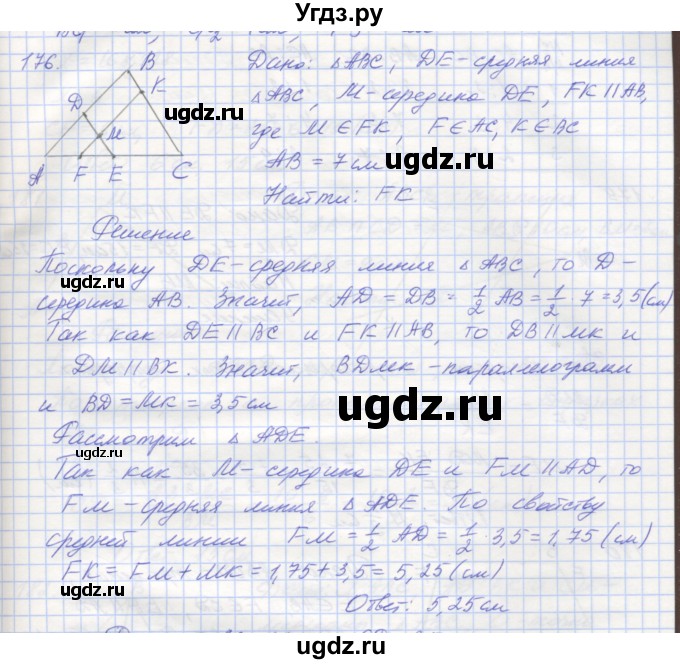 Угдз.ру
176.
B
K
D
M
A F E C
Дано: △ABC, DE-средняя линия
△ABC, M-середина DE, FK∥AB,
где M∈FK, F∈AC, K∈BC
AB = 7см
Найти: FK
Решение
Поскольку DE-средняя линия △ABC, то D-
середина AB. Значит, AD = DB = 1/2 AB = 1/2 · 7 = 3,5(см)
Так как DE∥BC и FK∥AB, то DB∥MK и
DM∥BK. Значит, BDMK - параллелограмм
и BD = MK = 3,5см
Рассмотрим △ADE.
Так как M-середина DE и FM∥AD, то
FM-средняя линия △ADE. По свойству
средней линии FM = 1/2 AD = 1/2 · 3,5 = 1,75(см)
FK = FM + MK = 1,75 + 3,5 = 5,25(см)
Ответ: 5,25см
ugdz.ru
ugdz.ru
ugdz.ru
ugdz.ru
ugdz.ru
ugdz.ru
ugdz.ru
ugdz.ru
ugdz.ru